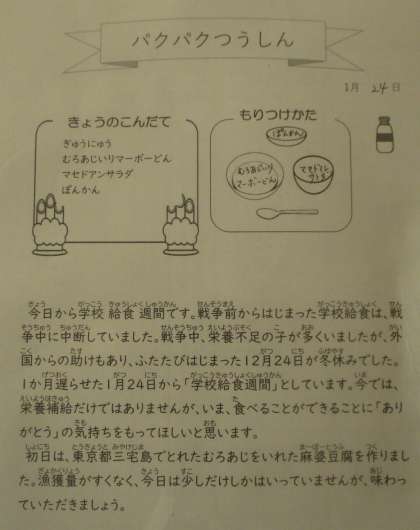 パクパクつうしん
1月 24 日
きょうのこんだて
ぎゅうにゅう
むろあじいりマーボーどん
マセドアンサラダ
ぽんかん
もりつけかた
ぽんかん
むろあじいり
マーボーどん
マセドアン
サラダ
今日から学校 給食 週間です。戦争前からはじまった学校給食は、戦
争中に中断していました。戦争中、栄養不足の子が多くいましたが、外
国からの助けもあり、ふたたびはじまった12月24日が冬休みでした。
1か月遅らせた1月24日から「学校給食週間」としています。今では、
栄養補給だけではありませんが、いま、食べることができることに「あり
がとう」の気持ちをもってほしいと思います。
初日は、東京都三宅島でとれたむろあじをいれた麻婆豆腐を作りまし
た。漁獲量がすくなく、今日は少しだけしかはいっていませんが、味わっ
ていただきましょう。